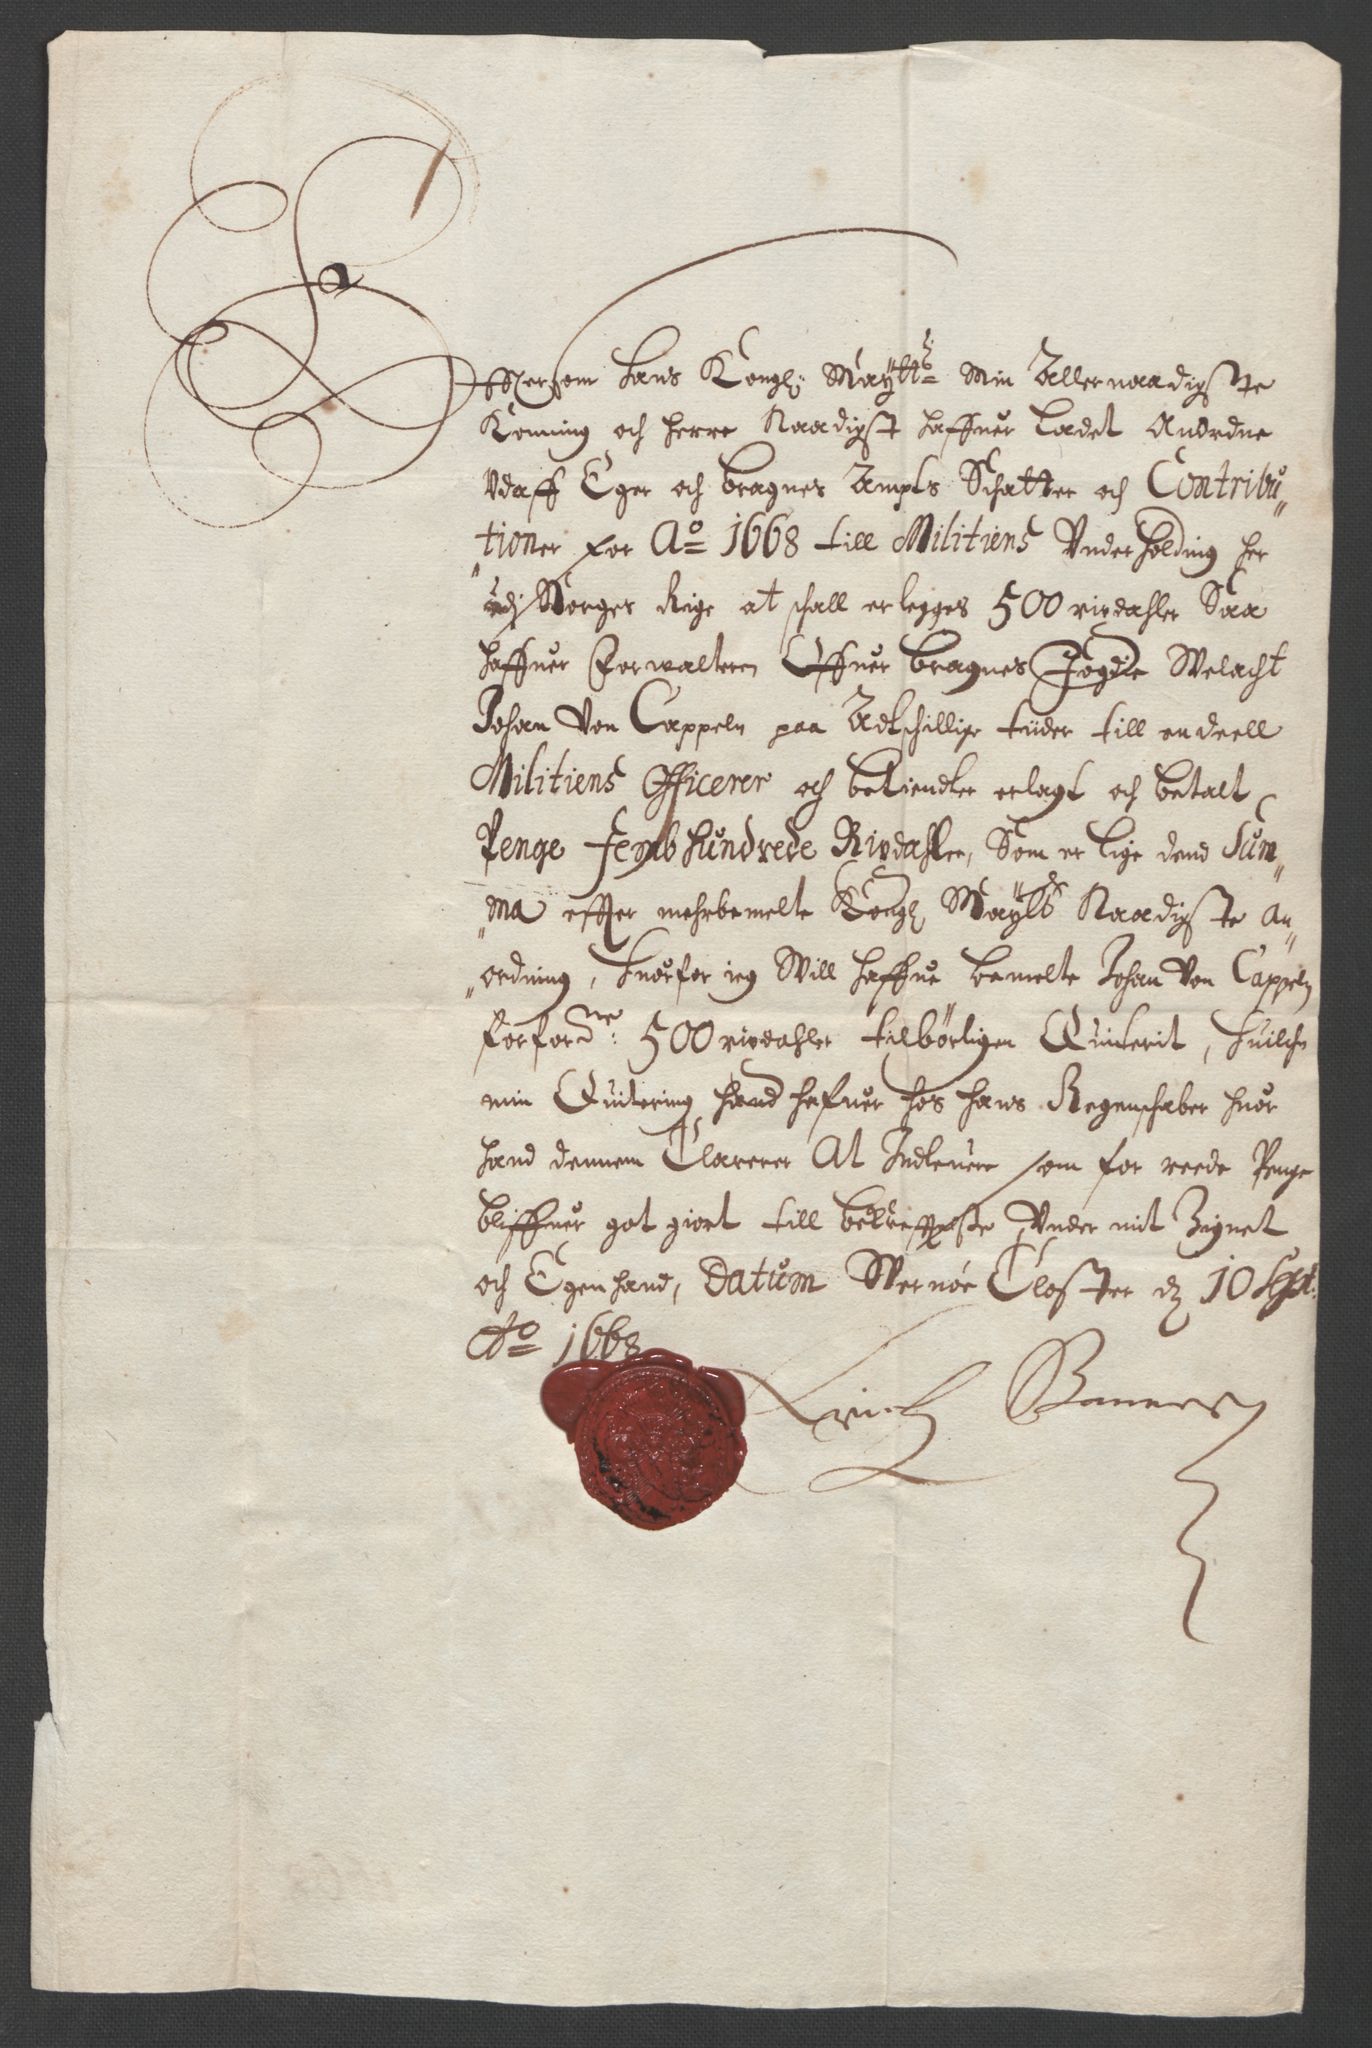 Effttersom Hans Kongl: Maÿtt:s Min Allernaadigste
Konning och Herre Naadigst haffuer Ladet Anordne
Udaff Eger och Bragnes Ampts Schatter och Contribu„
„tioner for Ao 1668 till Militiens Underholding her
udj Norges Rige at schall erlegges 500 rixdahler Saa
haffuer Forwalteren Offuer Bragnes Fogdie Welacht
Johan Von Cappeln paa Adtschillige tiider till en deell
Militiens Officerer och betiendter erlagt och betalt
Penge Femb Hundrede Rixdahler, Som er lige dend Sum„
„ma effter mehrbemelte Kongl Maÿtts Naadigste an„
„ordning, huorfor ieg Will haffue bemelte Johan Von Cappeln
forforne: 500 rixdahler tilbörligen Quiterit, huilchen
min Quitering hand hafuer hos hans Regenschaber huor
hand dennem Clarerer At Indleuere som for reede Penge
bliffuer got giort till bekrefftelse Under mit Zignet
och Egen hand, Datum Wernöe Closter dz 10 Sept:
Ao 1668
Erich Banner